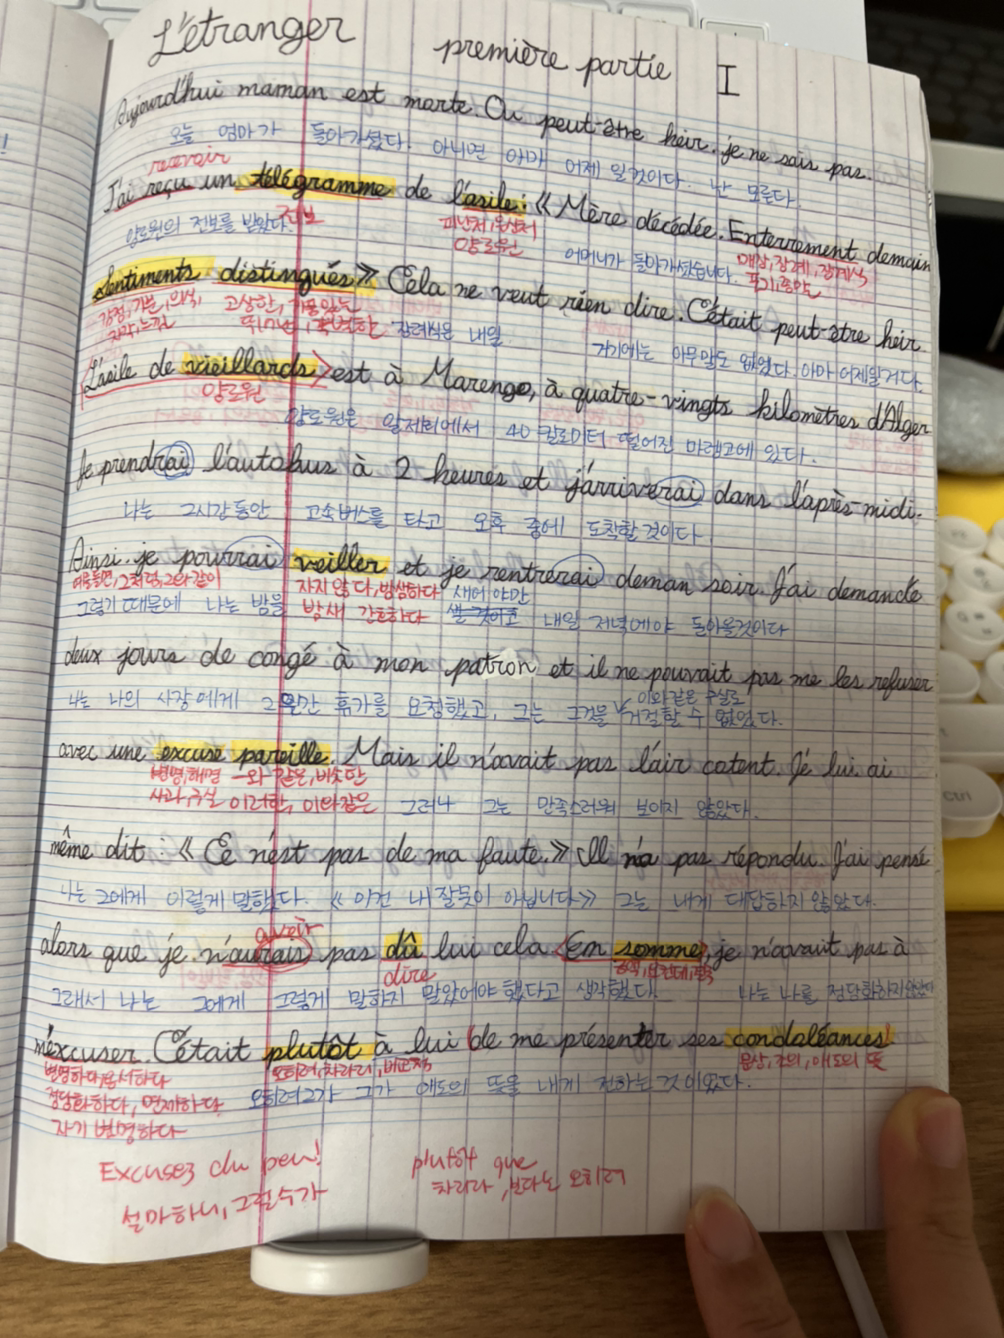 L'étranger première partie I
Aujourd'hui maman est morte. Ou peut-être heir. je ne sais pas.
오늘 엄마가 돌아가셨다. 아니면 아마 어제 일것이다. 난 모른다.
recevoir
J'ai reçu un télégramme de l'asile: «Mère décédée. Enterrement demain
양로원의 전보를 받았다. 전보 피난처, 은신처 양로원 어머니가 돌아가셨습니다. 매장, 장례, 장례식
sentiments distingués» Céla ne veut rien dire. C'était peut-être heir.
감정, 기분, 의식, 자각, 느낌 고상한, 기품있는 장례식은 내일 거기에는 아무말도 없었다. 아마 어제일거다.
L'asile de vieillards est à Marengo, à quatre-vingts kilomètres d'Alger
양로원
양로원은 알제리에서 40 킬로미터 떨어진 마렝고에 있다.
Je prendrai l'autobus à 2 heures et j'arriverai dans l'après-midi.
나는 2시간동안 고속버스를 타고 오후 중에 도착할것이다
Ainsi. je pourrai veiller et je rentrerai deman soir. J'ai demandé
예를들면, 그처럼, 그와같이 자지 않다, 밤샘하다 새어야만
그렇기 때문에 나는 밤을 밤새 간호하다 샐 것이고 내일 저녁에야 돌아올것이다
deux jours de congé à mon patron et il ne pouvait pas me les refuser
이와같은 구실로
나는 나의 사장에게 2일간 휴가를 요청했고, 그는 그것을 거절할 수 없었다.
avec une excuse pareille. Mais il n'avait pas l'air cotent. Je lui ai
변명, 해명 -와 같은, 비슷한
사과, 구실 이러한, 이와같은 그러나 그는 만족스러워 보이지 않았다.
même dit: «Ce n'est pas de ma faute.» Il n'a pas répondu. J'ai pensé
나는 그에게 이렇게 말했다. «이건 내 잘못이 아닙니다» 그는 내게 대답하지 않았다.
avoir
alors que je n'aurais pas dû lui cela. En somme, je n'avait pas à
dire
그래서 나는 그에게 그렇게 말하지 말았어야 했다고 생각했다. 나는 나를 정당화하지
m'excuser. C'était plutôt à lui de me présenter ses condoléances
변명하다, 용서하다 오히려, 차라리, 비교적 문상, 조의, 애도의 뜻
정당화하다, 면제하다 오히려 그가 애도의 뜻을 내게 전하는 것이었다.
자기 변명하다
Excusez du peu! plutôt que
설마하니, 그럴수가 차라리, 보다는 오히려
Ctrl